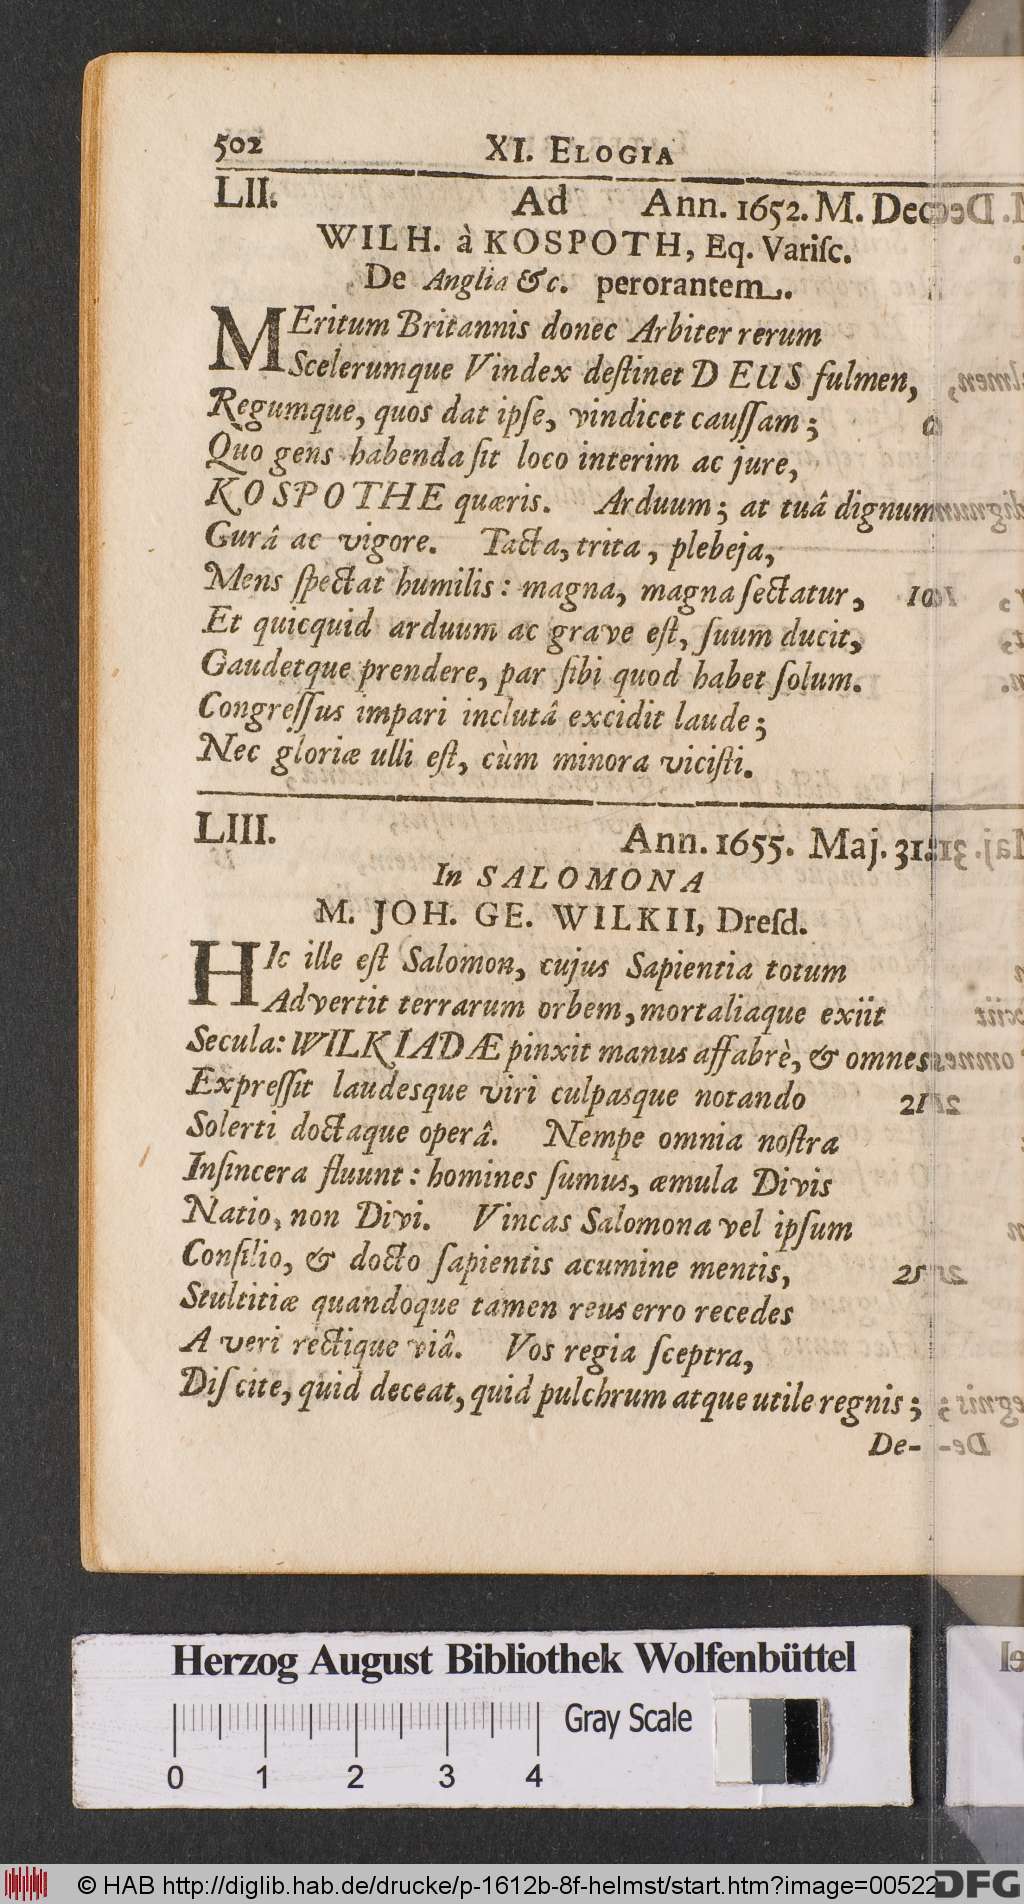 502 XI. ELOGIA
LII. Ad Ann. 1652. M. Dec
WILH. à KOSPOTH, Eq. Variſc.
De Anglia &c. perorantem.
MEritum Britannis donec Arbiter rerum
Scelerumque Vindex deſtinet DEUS fulmen,
Regumque, quos dat ipſe, vindicet cauſſam;
Quo gens habenda ſit loco interim ac jure,
KOSPOTHE quæris. Arduum; at tuâ dignum
Curâ ac vigore. Tacta, trita, plebeja,
Mens ſpectat humilis: magna, magna ſectatur, 10
Et quicquid arduum ac grave eſt, ſuum ducit,
Gaudetque prendere, par ſibi quod habet ſolum.
Congreſſus impari inclutâ excidit laude;
Nec gloriæ ulli eſt, cùm minora viciſti.
LIII. Ann. 1655. Maj. 31.
In SALOMONA
M. JOH. GE. WILKII, Dreſd.
HIc ille eſt Salomon, cujus Sapientia totum
Advertit terrarum orbem, mortaliaque exiit
Secula: WILKIADÆ pinxit manus affabrè, & omnes
Expreſſit laudesque viri culpasque notando 21
Solerti doctaque operâ. Nempe omnia noſtra
Inſincera fluunt: homines ſumus, æmula Divis
Natio, non Divi. Vincas Salomona vel ipſum
Conſilio, & docto ſapientis acumine mentis, 25
Stultitiæ quandoque tamen reus erro recedes
A veri rectique viâ. Vos regia ſceptra,
Diſcite, quid deceat, quid pulchrum atque utile regnis;
De-
Herzog August Bibliothek Wolfenbüttel
Gray Scale
0 1 2 3 4
© HAB http://diglib.hab.de/drucke/p-1612b-8f-helmst/start.htm?image=00522
DFG